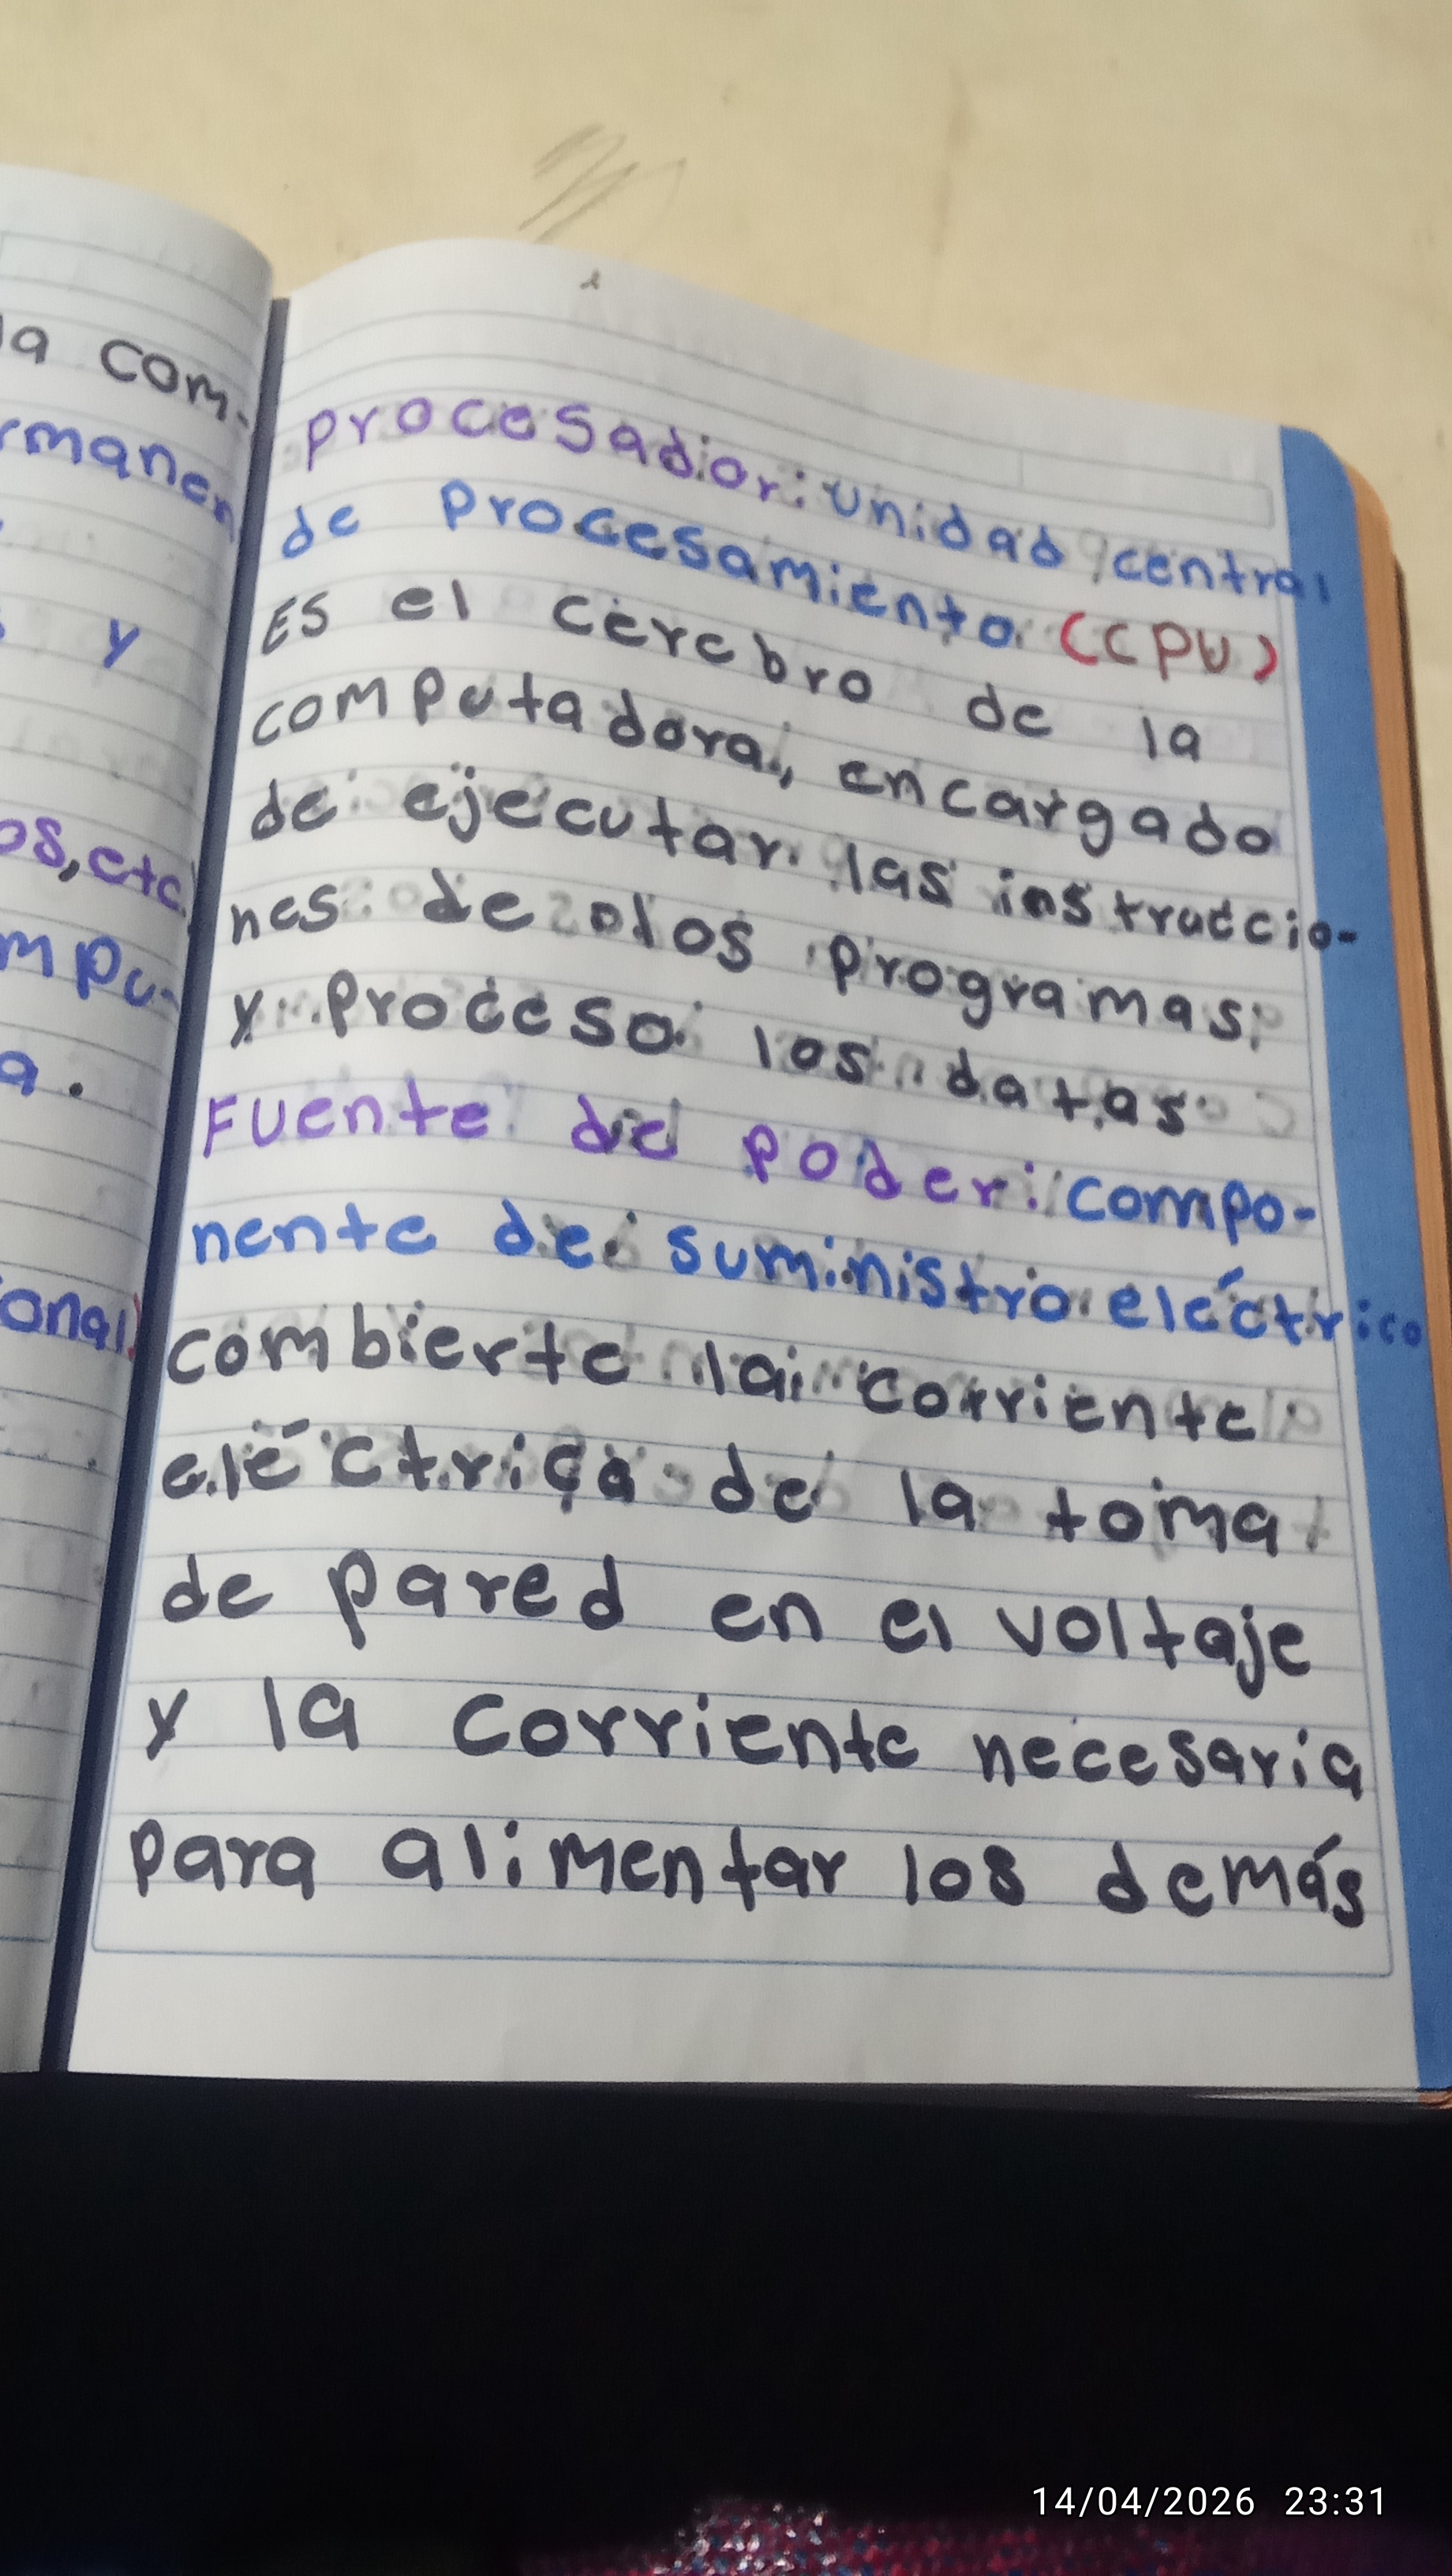 a com-
rmanen
y
os, etc.
mpu-
a.
onal)
procesador: unidad central
de Procesamiento (CPU)
ES el cerebro de la
computadora, encargado
de ejecutar las instruccio-
nes de los programas
y Proceso los datos
Fuente de poder: compo-
nente de suministro eléctrico
combierte la corriente
eléctrica de la toma
de pared en el voltaje
y la corriente necesaria
para alimentar los demás
14/04/2026 23:31